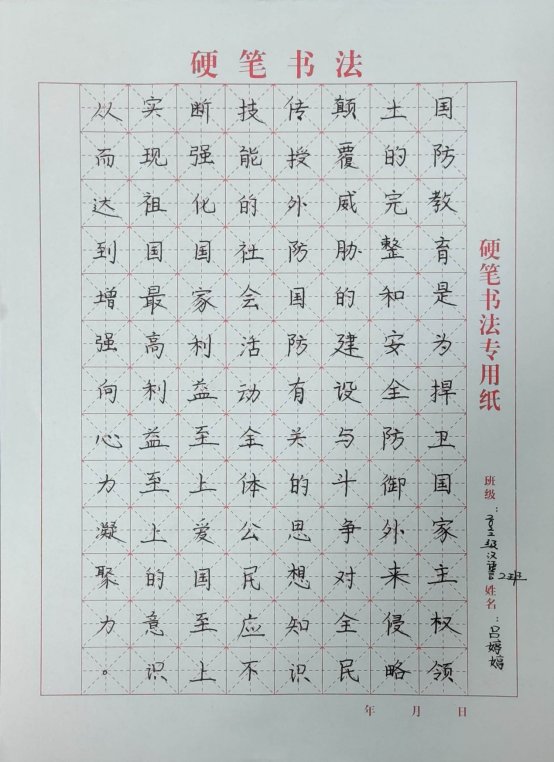 硬笔书法
国防教育是为捍卫国家主权领
土的完整和安全防御外来侵略
颠覆威胁的建设与斗争对全民
传授外防国防有关的思想知识
技能的社会活动全体公民应不
断强化国家利益至上爱国至上
实现祖国最高利益至上的意识
从而达到增强向心力凝聚力。
硬笔书法专用纸
班级：级汉语2班 姓名：吕婷婷
年 月 日